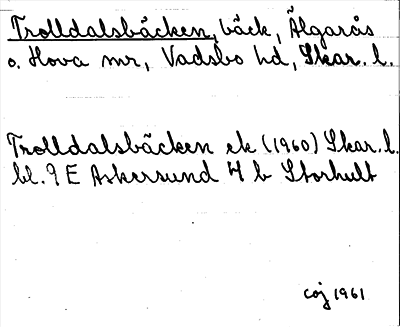 Trolldalsbäcken, bäck, Älgarås
o. Hova snr, Vadsbo hd, Skar. l.
Trolldalsbäcken ek (1960) Skar. l.
bl. 9 E Askersund 4 b Storhult
COJ 1961